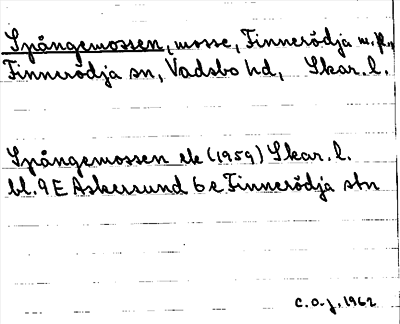 Spångemossen, mosse, Finnerödja m.fl.,
Finnerödja sn, Vadsbo hd, Skar. l.
Spångemossen ek (1959) Skar. l.
bl. 9 E Askersund 6 e Finnerödja stn
C.O.J. 1962